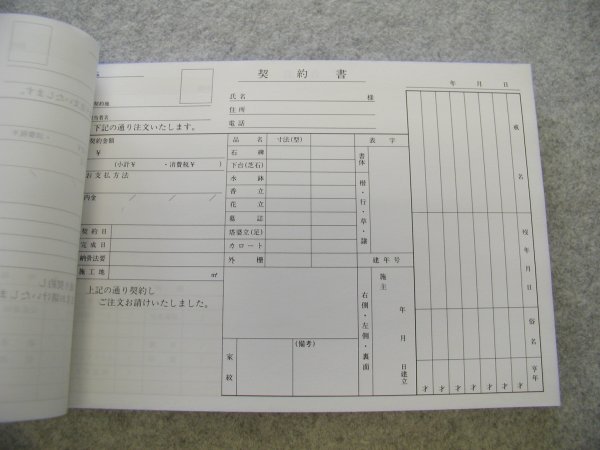 契約書
年 月 日
氏名 様
住所
電話
契約地
担当者名
下記の通り注文いたします。
契約金額
¥
(小計¥ ・消費税¥ )
お支払方法
内金 / / /
契約日
完成日
納骨法要
施工地 ㎡
上記の通り契約し
ご注文お請けいたしました。
品名 寸法(型)
石碑
下台(芝石)
水鉢
香立
花立
墓誌
塔婆立(足)
カロート
外柵
家紋
(備考)
表字
書体 楷・行・草・隷
建年号
右側・左側・裏面
施主
年 月 日建立
戒名
歿年月日
俗名
享年
才 才 才 才 才 才 才